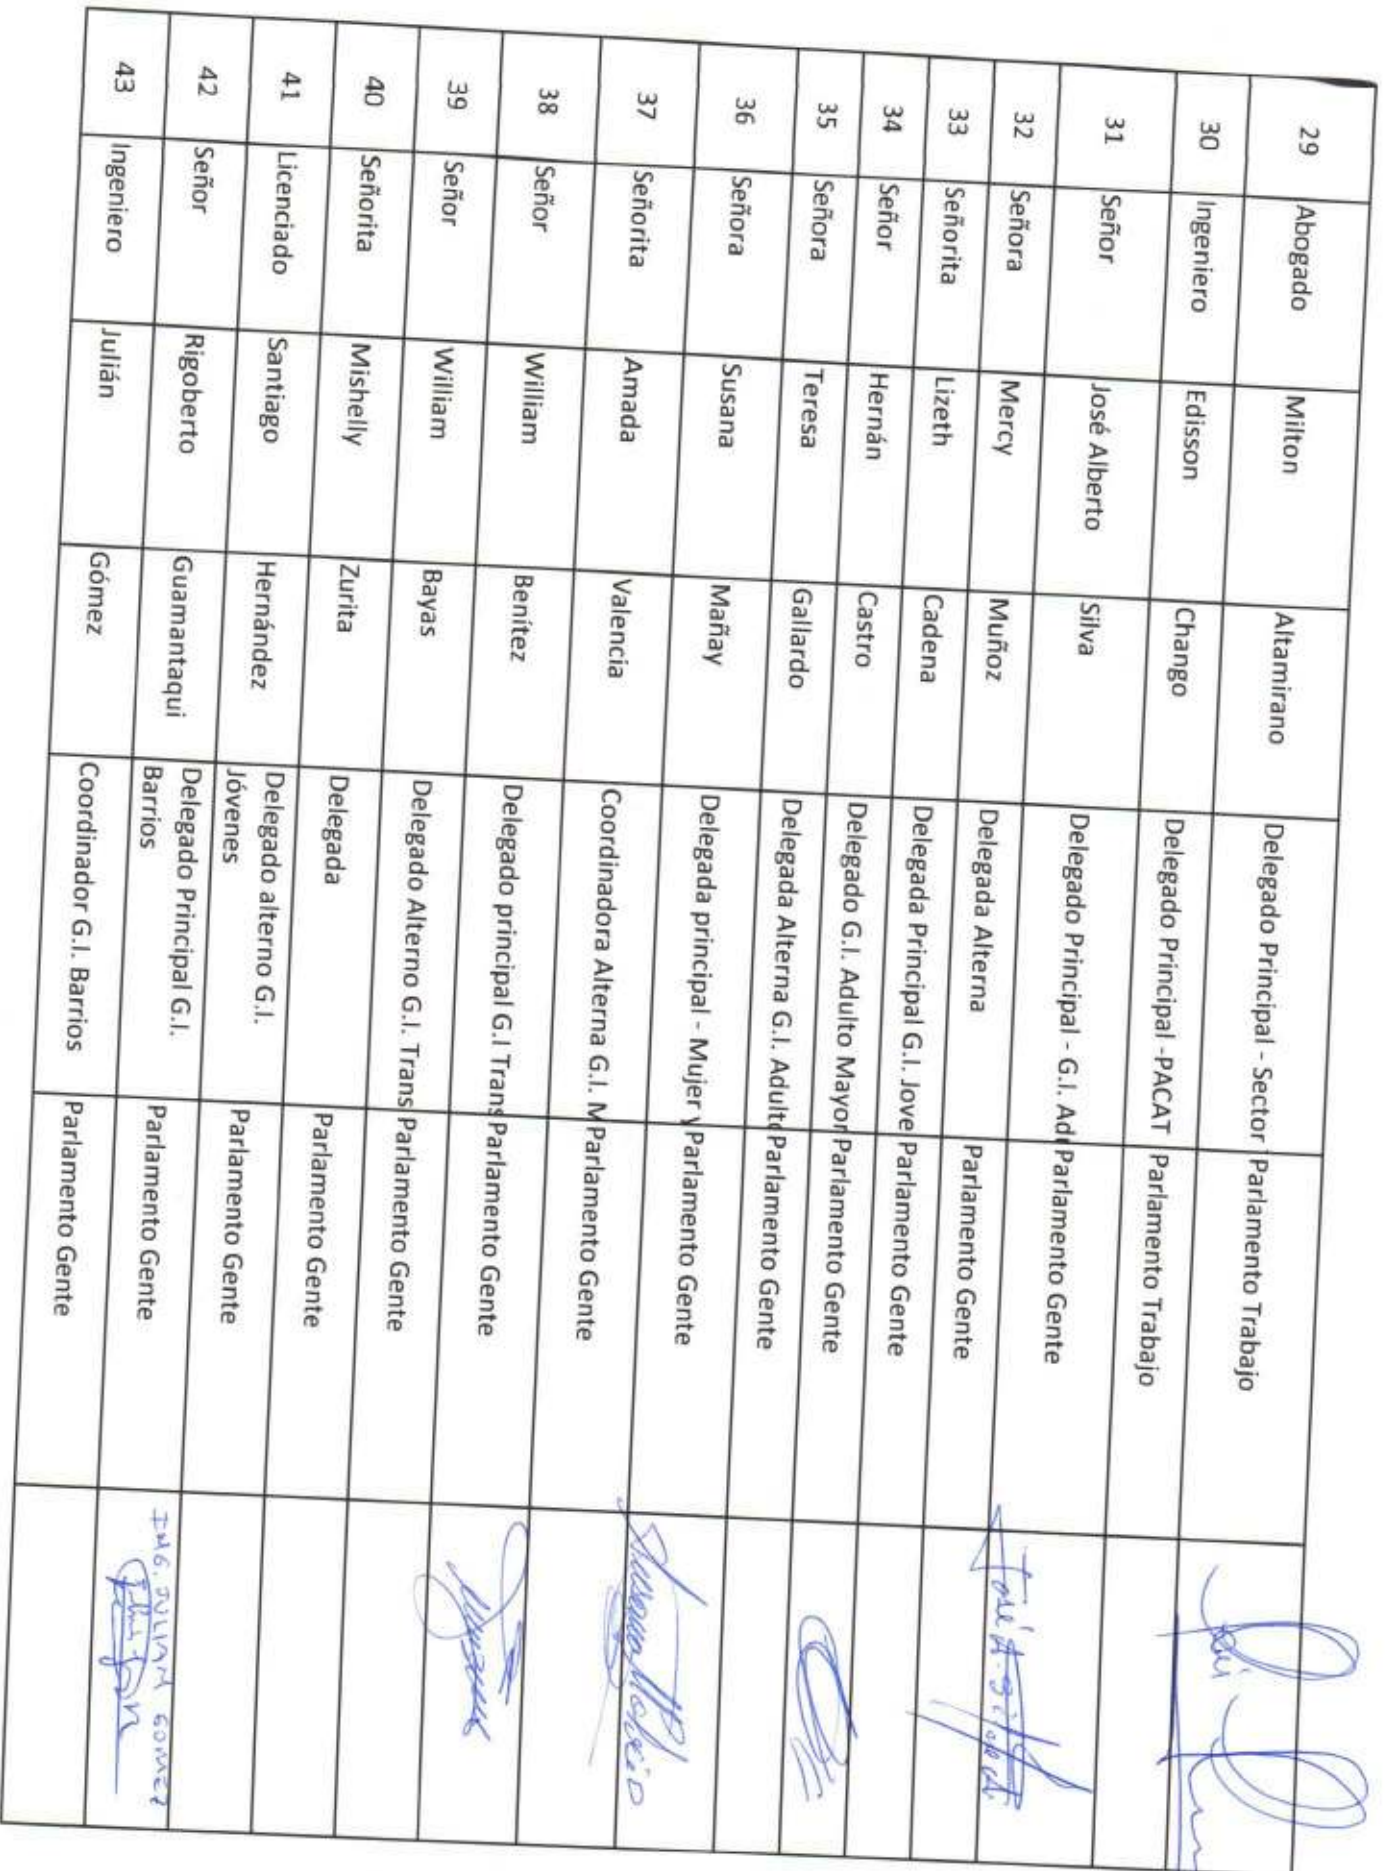 29 Abogado Milton Altamirano Delegado Principal - Sector Parlamento Trabajo
30 Ingeniero Edisson Chango Delegado Principal -PACAT Parlamento Trabajo
31 Señor José Alberto Silva Delegado Principal - G.I. Adu Parlamento Gente José A. Silva
32 Señora Mercy Muñoz Delegada Alterna Parlamento Gente
33 Señorita Lizeth Cadena Delegada Principal G.I. Jove Parlamento Gente
34 Señor Hernán Castro Delegado G.I. Adulto Mayor Parlamento Gente
35 Señora Teresa Gallardo Delegada Alterna G.I. Adulto Parlamento Gente
36 Señora Susana Mañay Delegada principal - Mujer y Parlamento Gente
37 Señorita Amada Valencia Coordinadora Alterna G.I. M Parlamento Gente
38 Señor William Benítez Delegado principal G.I Trans Parlamento Gente
39 Señor William Bayas Delegado Alterno G.I. Trans Parlamento Gente
40 Señorita Mishelly Zurita Delegada Parlamento Gente
41 Licenciado Santiago Hernández Delegado alterno G.I. Parlamento Gente
Jóvenes
42 Señor Rigoberto Guamantaqui Delegado Principal G.I. Parlamento Gente
Barrios
ING. JULIAN GOMEZ
43 Ingeniero Julián Gómez Coordinador G.I. Barrios Parlamento Gente